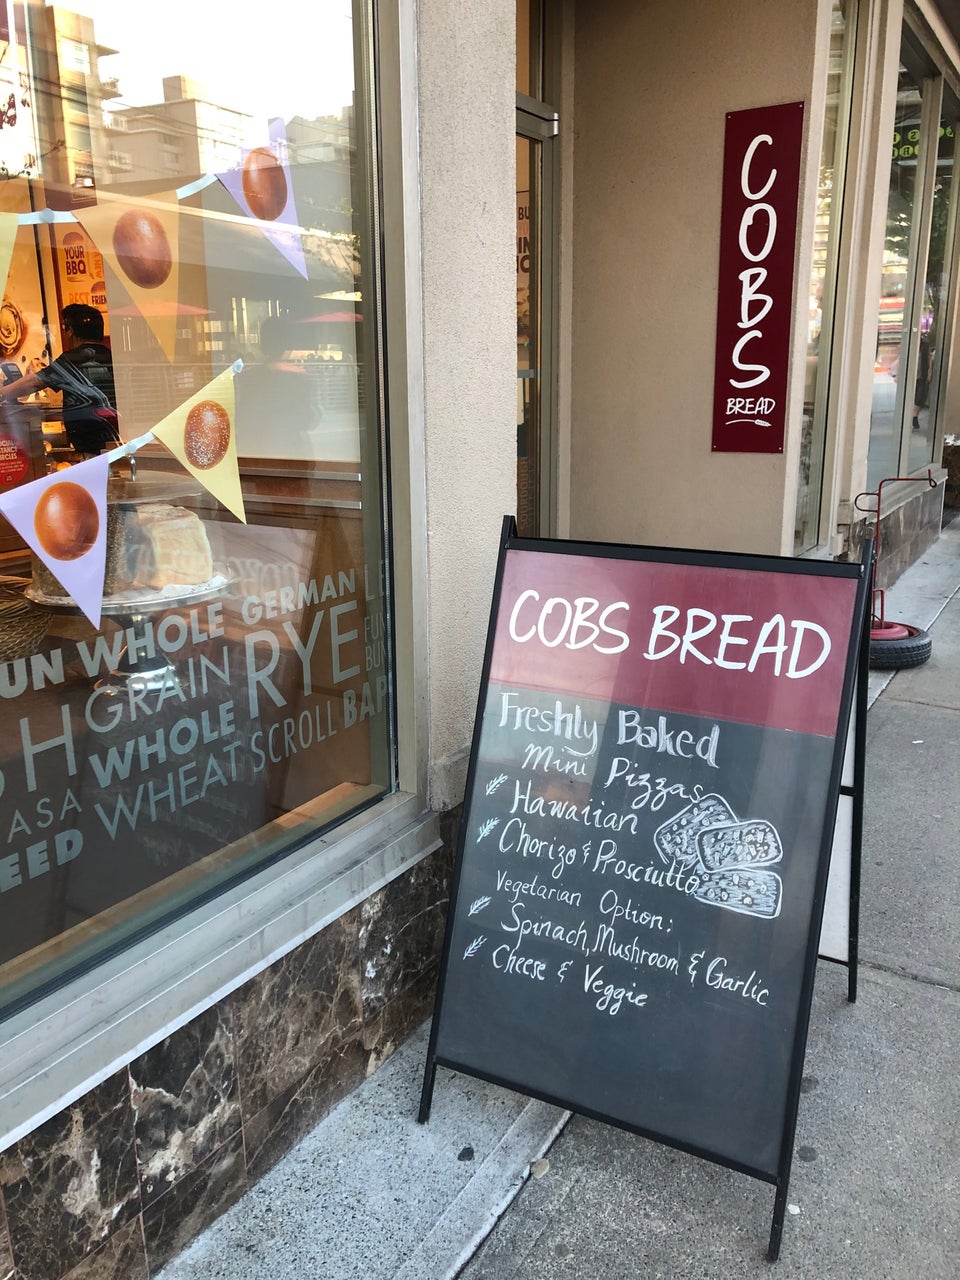 YOUR
BBQ
BEST FRIEN
UN WHOLE GERMAN
GRAIN RYE
WHOLE
ASA WHEAT SCROLL BAP
EED
COBS
BREAD
COBS BREAD
Freshly Baked
Mini Pizzas
Hawaiian
Chorizo & Prosciutto
Vegetarian Option:
Spinach, Mushroom & Garlic
Cheese & Veggie